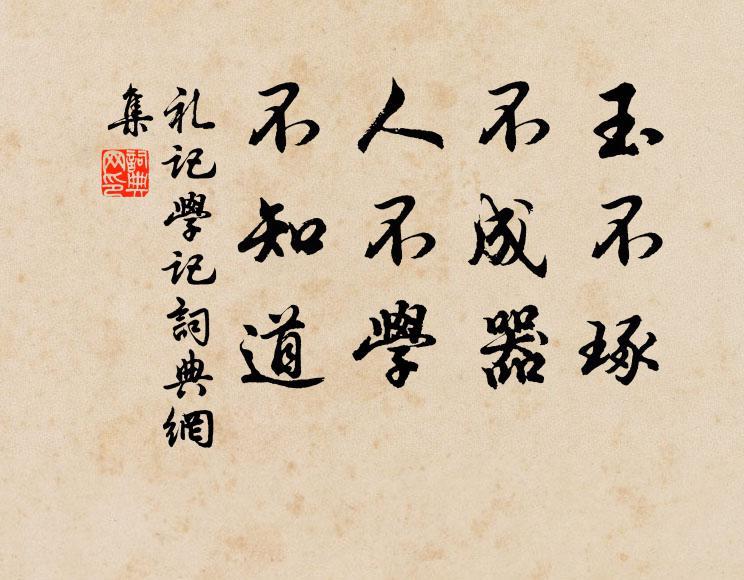 玉不琢
不成器
人不學
不知道
礼记學记詞典網
集
詞典
网印